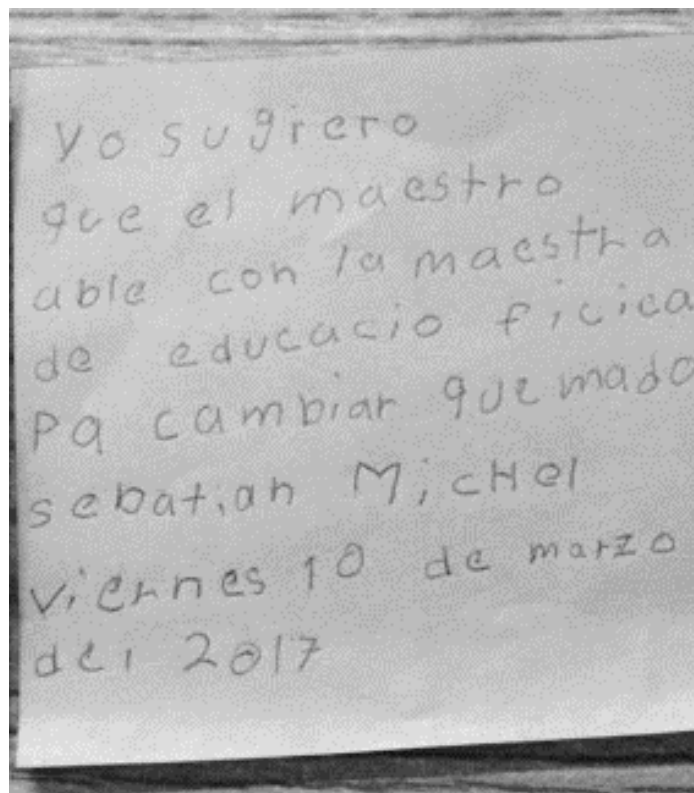 Yo sugiero
que el maestro
able con la maestra
de educacio ficica
Pa cambiar quemado
sebatian MicHel
viernes 10 de marzo
del 2017